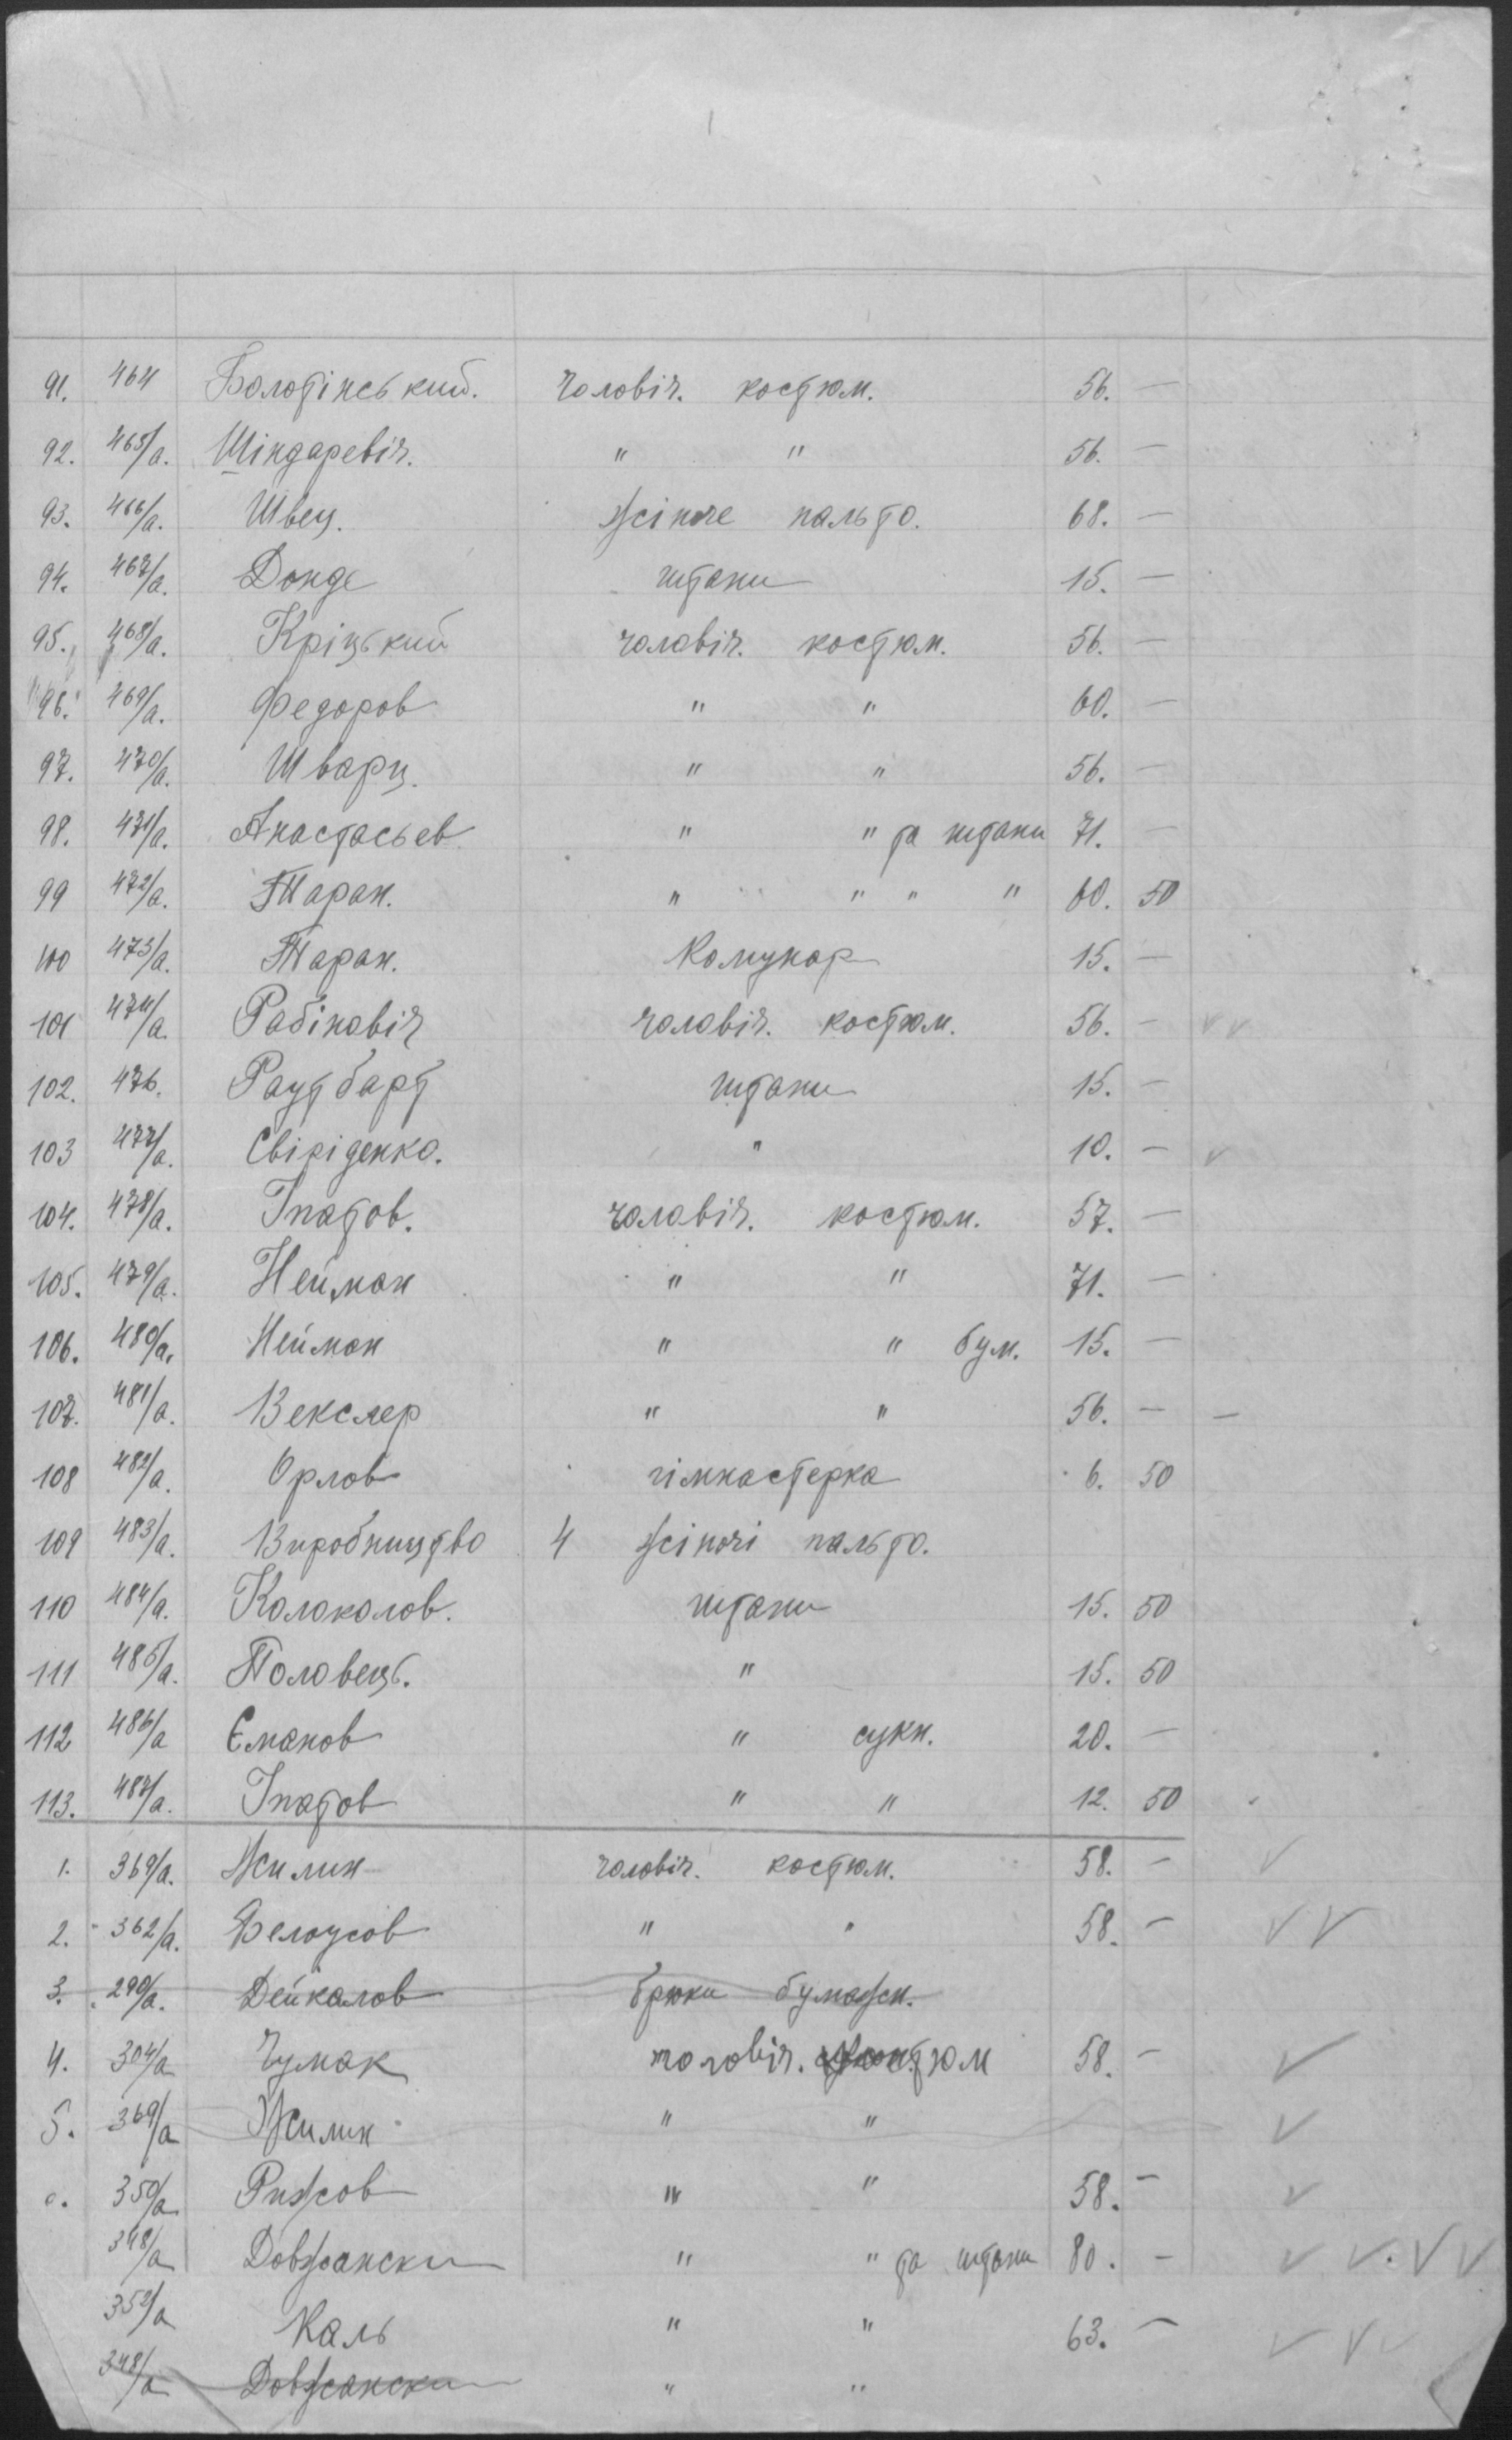 91. 464 Болотінський. Чоловіч. костюм. 56. —
92. 465/а. Шіндаревіч. " " 56. —
93. 466/а. Швец. жіноче пальто. 68. —
94. 467/а. Донде штани 15. —
95. 468/а. Кріцький чоловіч. костюм. 56. —
96. 469/а. Федоров " " 60. —
97. 470/а. Шварц. " " 56. —
98. 471/а. Анастасьев " " та штани 71. —
99 472/а. Таран. " " " " 60. 50
100 473/а. Таран. Комунар 15. —
101 474/а. Рабіновіч чоловіч. костюм. 56. —
102. 476. Раутбарт штани 15. —
103 477/а. Свіріденко. " 10. —
104. 478/а. Іпатов. чоловіч. костюм. 57. —
105. 479/а. Нейман " " 71. —
106. 480/а. Нейман " " бум. 15. —
107. 481/а. Векслер " " 56. — —
108 482/а. Орлов гімнастерка 6. 50
109 483/а. Виробництво 4 жіночі пальто.
110 484/а. Колоколов. штани 15. 50
111 485/а. Половець. " 15. 50
112 486/а Єманов " сукн. 20. —
113. 487/а. Іпатов " " 12. 50
1. 369/а. Жилин чоловіч. костюм. 58. —
2. 362/а. Белоусов " " 58. —
3. 290/а. Дейкалов брюки бумажн.
4. 304/а Чумак чоловіч. костюм 58. —
5. 369/а Жилин " "
350/а Рижов " " 58. —
348/а Довжански " " та штани 80. —
352/а Каль " " 63. —
348/а Довжански " "